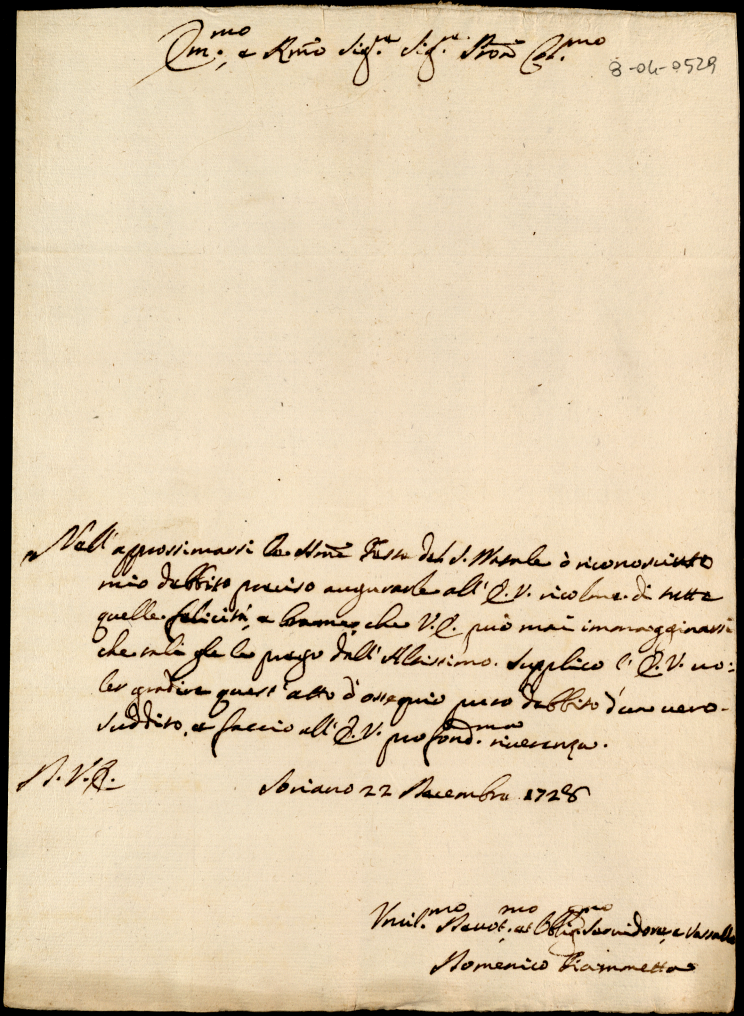 Em.mo, e Rmo Sig.re Sig.re Pron Col.mo
8-04-0529
Nell'approssimarsi le Sme Feste del S. Natale ò riconosciuto
mio debbito preciso augurarle all'E.V. ricolme di tutte
quelle felicità, e brame, che V.E. può mai immagginarsi
che tali gle le prego dall'Altissimo. Supplico l'E.V. vo=
ler gradire quest'atto d'ossequio puro debbito d'un vero
suddito, e faccio all'E.V. profond.ma riverenza.
D.V.E.
Soriano 22 Decembre 1728
Umil.mo Devot.mo et Oblig.mo Servidore, e Vassallo
Domenico Fiammetta